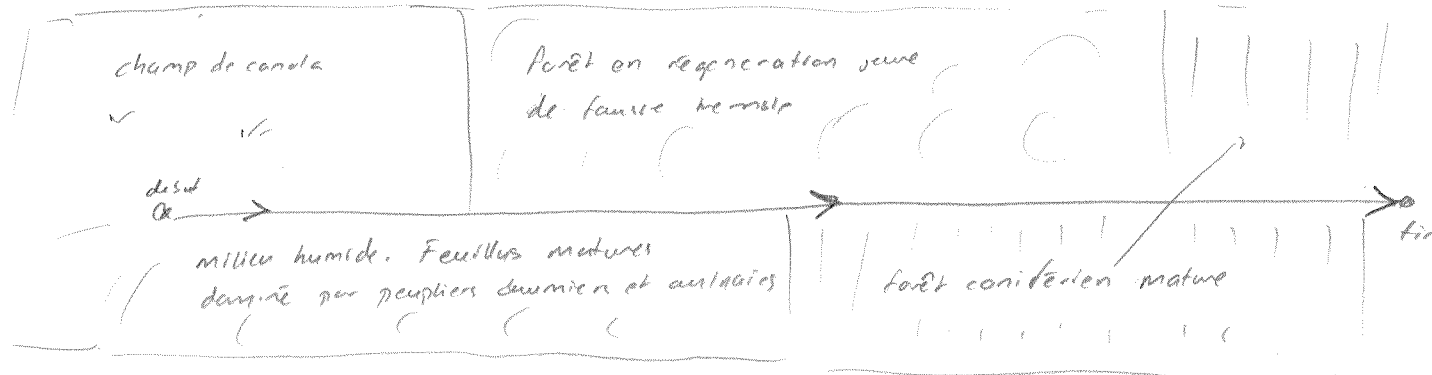 champ de canola
forêt en régénération jeune
de fausse
debut
milieu humide. Feuillus matures
dominé par peupliers baumiers et aulnaies
forêt coniférien mature
fin